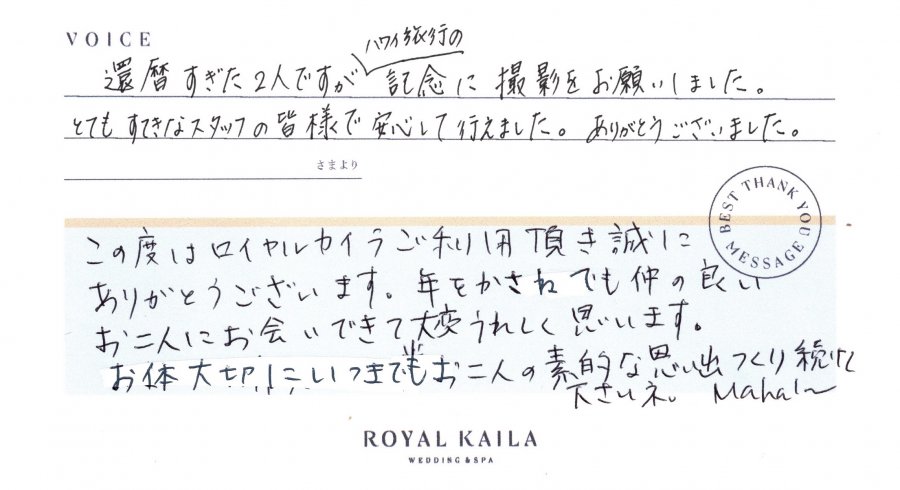 VOICE
ハワイ旅行の
還暦すぎた2人ですが記念に撮影をお願いしました。
とてもすてきなスタッフの皆様で安心して行えました。ありがとうございました。
さまより
BEST THANK YOU MESSAGE
この度はロイヤルカイラご利用頂き誠に
ありがとうございます。年をかさねても仲の良い
お二人にお会いできて大変うれしく思います。
お体大切にいつまでもお二人の素的な思い出つくり続けて
下さいネ。 Mahalo
ROYAL KAILA
WEDDING & SPA